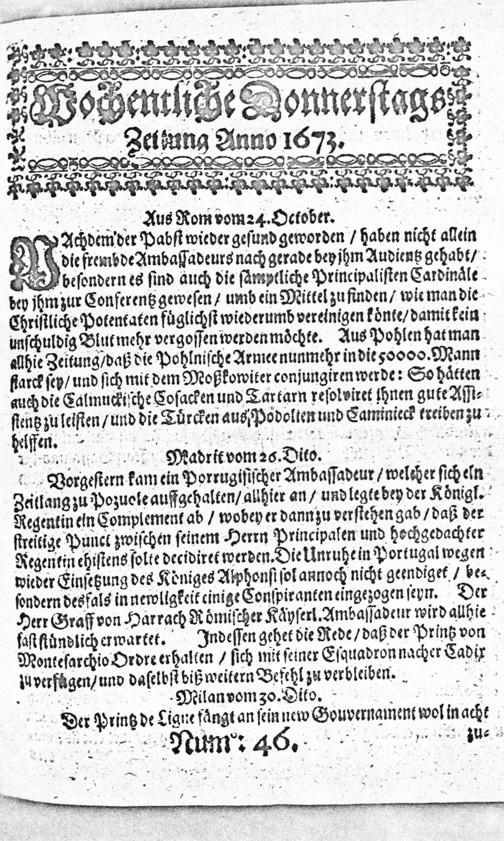 Wochentliche Donnerstags
Zeitung Anno 1673.
Aus Rom vom 24. October.
NAchdem der Pabst wieder gesund geworden / haben nicht allein
die frembde Ambassadeurs nach gerade bey jhm Audientz gehabt /
besondern es sind auch die sämptliche Principalisten Cardinäle
bey jhm zur Conferentz gewesen / umb ein Mittel zu finden / wie man die
Christliche Potentaten füglichst wiederumb vereinigen könte / damit kein
unschuldig Blut mehr vergossen werden möchte. Aus Pohlen hat man
allhie Zeitung / daß die Pohlnische Armee nunmehr in die 50000. Mann
starck sey / und sich mit dem Moßkowiter conjungiren werde: So hätten
auch die Calmuckische Cosacken und Tartarn resolviret Ihnen gute Assi-
stentz zu leisten / und die Türcken aus Podolien und Caminieck treiben zu
helffen.
Madrit vom 26. Dito.
Vorgestern kam ein Porrugisischer Ambassadeur / welcher sich ein
Zeitlang zu Pozuele auffgehalten / allhier an / und legte bey der Königl.
Regentin ein Complement ab / wobey er dann zu verstehen gab / daß der
streitige Punct zwischen seinem Herrn Principalen und hochgedachter
Regentin ehistens solte decidiret werden. Die Unruhe in Portugal wegen
wieder Einsetzung des Königes Alphonsi sol annoch nicht geendiget / be-
sondern desfals in newligkeit einige Conspiranten eingezogen seyn. Der
Herr Graff von Harrach Römischer Käyserl. Ambassadeur wird allhie
fast stündlich erwartet. Indessen gehet die Rede / daß der Printz von
Montesarchio Ordre erhalten / sich mit seiner Esquadron nacher Cadix
zu verfügen / und daselbst biß weitern Befehl zu verbleiben.
Milan vom 30. Dito.
Der Printz de Ligne fängt an sein new Gouvernament wol in acht
Num: 46. zu-